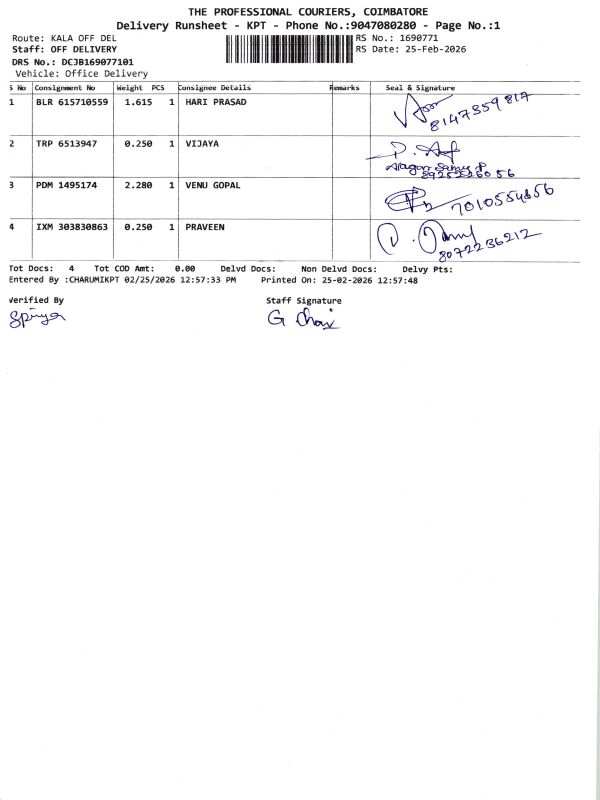 THE PROFESSIONAL COURIERS, COIMBATORE
Delivery Runsheet - KPT - Phone No.:9047080280 - Page No.:1
Route: KALA OFF DEL RS No.: 1690771
Staff: OFF DELIVERY RS Date: 25-Feb-2026
DRS No.: DCJB169077101
Vehicle: Office Delivery
S No Consignment No Weight PCS Consignee Details Remarks Seal & Signature
1 BLR 615710559 1.615 1 HARI PRASAD
8147359817
2 TRP 6513947 0.250 1 VIJAYA
3 PDM 1495174 2.280 1 VENU GOPAL
7010554656
4 IXM 303830863 0.250 1 PRAVEEN
8072236212
Tot Docs: 4 Tot COD Amt: 0.00 Delvd Docs: Non Delvd Docs: Delvy Pts:
Entered By :CHARUMIKPT 02/25/2026 12:57:33 PM Printed On: 25-02-2026 12:57:48
Verified By Staff Signature
G